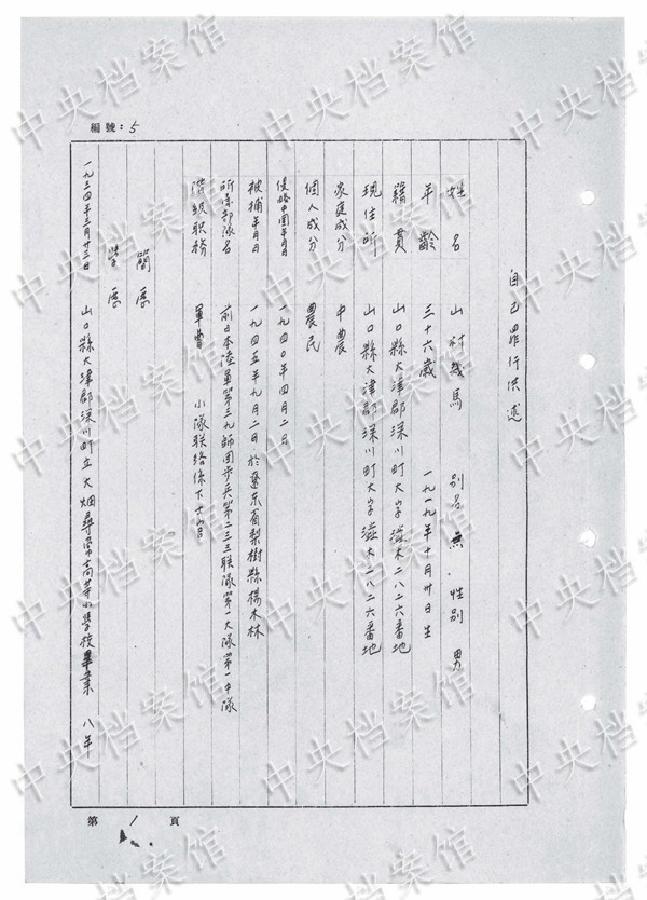 編號：5
自己罪行供述
姓名 山村幾馬 別名 無 性別 男
年齡 三十六歲 一九一九年十月廿日生
籍貫 山口縣大津郡深川町大字澁木二八二六番地
現住所 山口縣大津郡深川町大字澁木二八二六番地
家庭成分 中農
個人成分 農民
侵略中国年月日 一九四〇年四月二日
被捕年月日 一九四五年九月二日於遼东省梨樹縣楊木林
所属部隊名 前日本陸軍第三九師团步兵第二三三联隊第一大隊第一中隊
階級职務 軍曹 小隊联络係下士官
簡歷
學歷
一九三四年三月廿三日 山口縣大津郡深川町立大畑尋常高等小學校畢業 八年
第 1 頁
中央档案馆